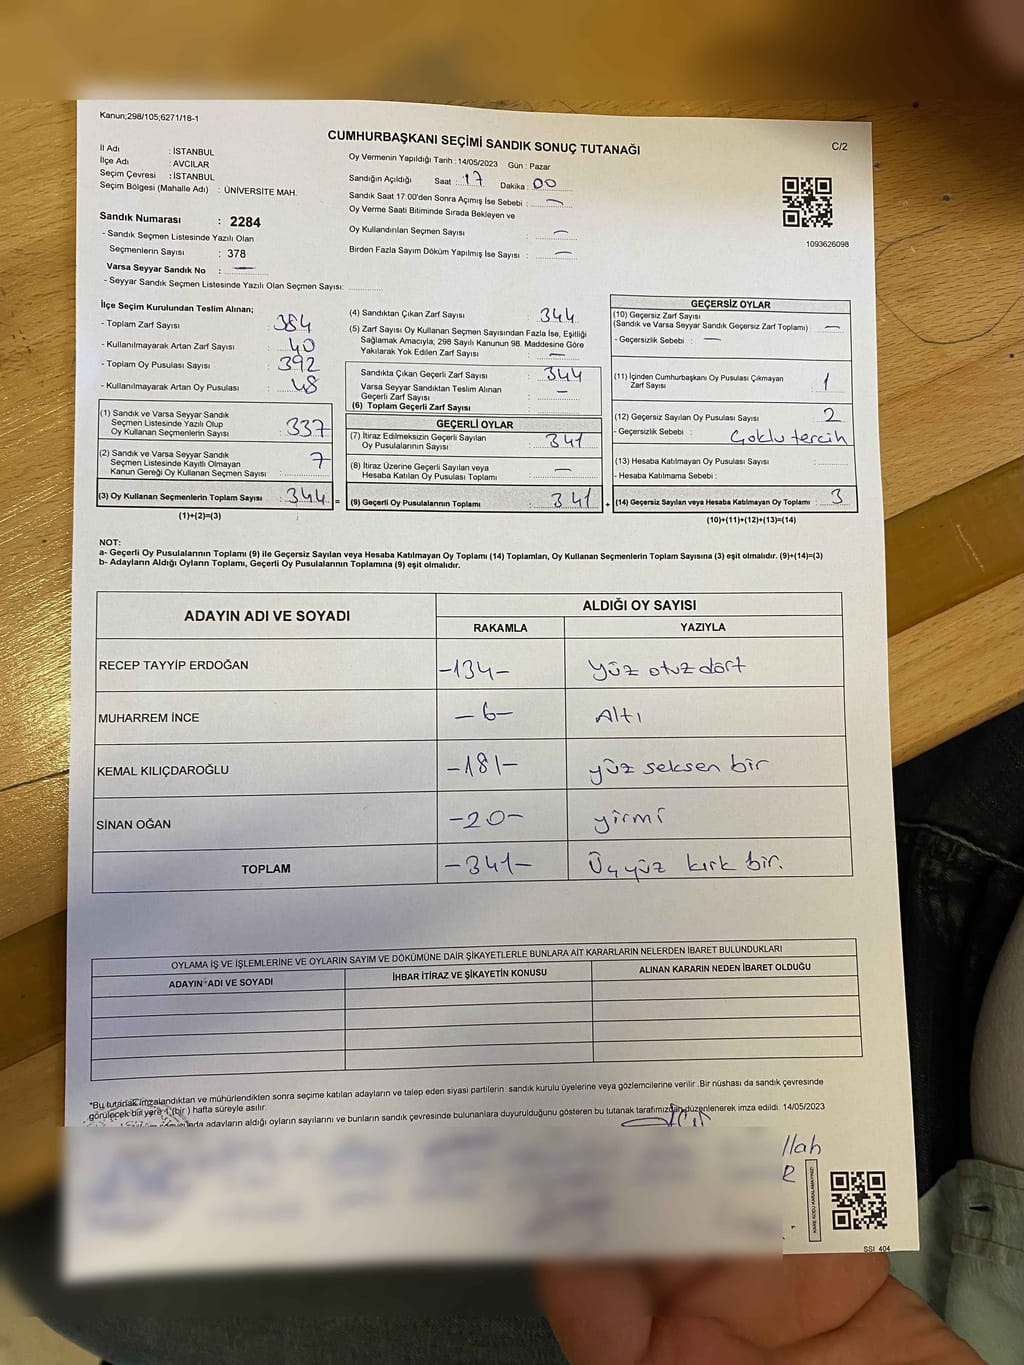 Kanun;298/105;6271/18-1
CUMHURBAŞKANI SEÇİMİ SANDIK SONUÇ TUTANAĞI
C/2
İl Adı : İSTANBUL
İlçe Adı : AVCILAR
Seçim Çevresi : İSTANBUL
Seçim Bölgesi (Mahalle Adı) : ÜNİVERSİTE MAH.
Sandık Numarası : 2284
- Sandık Seçmen Listesinde Yazılı Olan
Seçmenlerin Sayısı : 378
Varsa Seyyar Sandık No : —
- Seyyar Sandık Seçmen Listesinde Yazılı Olan Seçmen Sayısı:
Oy Vermenin Yapıldığı Tarih : 14/05/2023 Gün : Pazar
Sandığın Açıldığı Saat : 17 Dakika : 00
Sandık Saat 17:00'den Sonra Açımış İse Sebebi : —
Oy Verme Saati Bitiminde Sırada Bekleyen ve
Oy Kullandırılan Seçmen Sayısı : —
Birden Fazla Sayım Döküm Yapılmış İse Sayısı : —
1093626098
İlçe Seçim Kurulundan Teslim Alınan;
- Toplam Zarf Sayısı : 384
- Kullanılmayarak Artan Zarf Sayısı : 40
- Toplam Oy Pusulası Sayısı : 392
- Kullanılmayarak Artan Oy Pusulası : 48
(1) Sandık ve Varsa Seyyar Sandık
Seçmen Listesinde Yazılı Olup
Oy Kullanan Seçmenlerin Sayısı : 337
(2) Sandık ve Varsa Seyyar Sandık
Seçmen Listesinde Kayıtlı Olmayan
Kanun Gereği Oy Kullanan Seçmen Sayısı : 7
(3) Oy Kullanan Seçmenlerin Toplam Sayısı : 344 =
(1)+(2)=(3)
(4) Sandıktan Çıkan Zarf Sayısı : 344
(5) Zarf Sayısı Oy Kullanan Seçmen Sayısından Fazla İse, Eşitliği
Sağlamak Amacıyla; 298 Sayılı Kanunun 98. Maddesine Göre
Yakılarak Yok Edilen Zarf Sayısı : —
Sandıkta Çıkan Geçerli Zarf Sayısı : 344
Varsa Seyyar Sandıktan Teslim Alınan
Geçerli Zarf Sayısı : —
(6) Toplam Geçerli Zarf Sayısı :
GEÇERLİ OYLAR
(7) İtiraz Edilmeksizin Geçerli Sayılan
Oy Pusulalarının Sayısı : 341
(8) İtiraz Üzerine Geçerli Sayılan veya
Hesaba Katılan Oy Pusulası Toplamı : —
(9) Geçerli Oy Pusulalarının Toplamı : 341 +
GEÇERSİZ OYLAR
(10) Geçersiz Zarf Sayısı
(Sandık ve Varsa Seyyar Sandık Geçersiz Zarf Toplamı) : —
- Geçersizlik Sebebi : —
(11) İçinden Cumhurbaşkanı Oy Pusulası Çıkmayan
Zarf Sayısı : 1
(12) Geçersiz Sayılan Oy Pusulası Sayısı : 2
- Geçersizlik Sebebi : Çoklu tercih
(13) Hesaba Katılmayan Oy Pusulası Sayısı :
- Hesaba Katılmama Sebebi :
(14) Geçersiz Sayılan veya Hesaba Katılmayan Oy Toplamı : 3
(10)+(11)+(12)+(13)=(14)
NOT:
a- Geçerli Oy Pusulalarının Toplamı (9) ile Geçersiz Sayılan veya Hesaba Katılmayan Oy Toplamı (14) Toplamları, Oy Kullanan Seçmenlerin Toplam Sayısına (3) eşit olmalıdır. (9)+(14)=(3)
b- Adayların Aldığı Oyların Toplamı, Geçerli Oy Pusulalarının Toplamına (9) eşit olmalıdır.
ADAYIN ADI VE SOYADI
ALDIĞI OY SAYISI
RAKAMLA YAZIYLA
RECEP TAYYİP ERDOĞAN -134- Yüz otuz dört
MUHARREM İNCE -6- Altı
KEMAL KILIÇDAROĞLU -181- yüz seksen bir
SİNAN OĞAN -20- yirmi
TOPLAM -341- Üçyüz kırk bir.
OYLAMA İŞ VE İŞLEMLERİNE VE OYLARIN SAYIM VE DÖKÜMÜNE DAİR ŞİKAYETLERLE BUNLARA AİT KARARLARIN NELERDEN İBARET BULUNDUKLARI
ADAYIN ADI VE SOYADI İHBAR İTİRAZ VE ŞİKAYETİN KONUSU ALINAN KARARIN NEDEN İBARET OLDUĞU
*Bu tutanak imzalandıktan ve mühürlendikten sonra seçime katılan adayların ve talep eden siyasi partilerin sandık kurulu üyelerine veya gözlemcilerine verilir .Bir nüshası da sandık çevresinde
görülecek bir yere 1 (bir ) hafta süreyle asılır.
adayların aldığı oyların sayılarını ve bunların sandık çevresinde bulunanlara duyurulduğunu gösteren bu tutanak tarafımızdan düzenlenerek imza edildi. 14/05/2023
llah
R
SSI 404